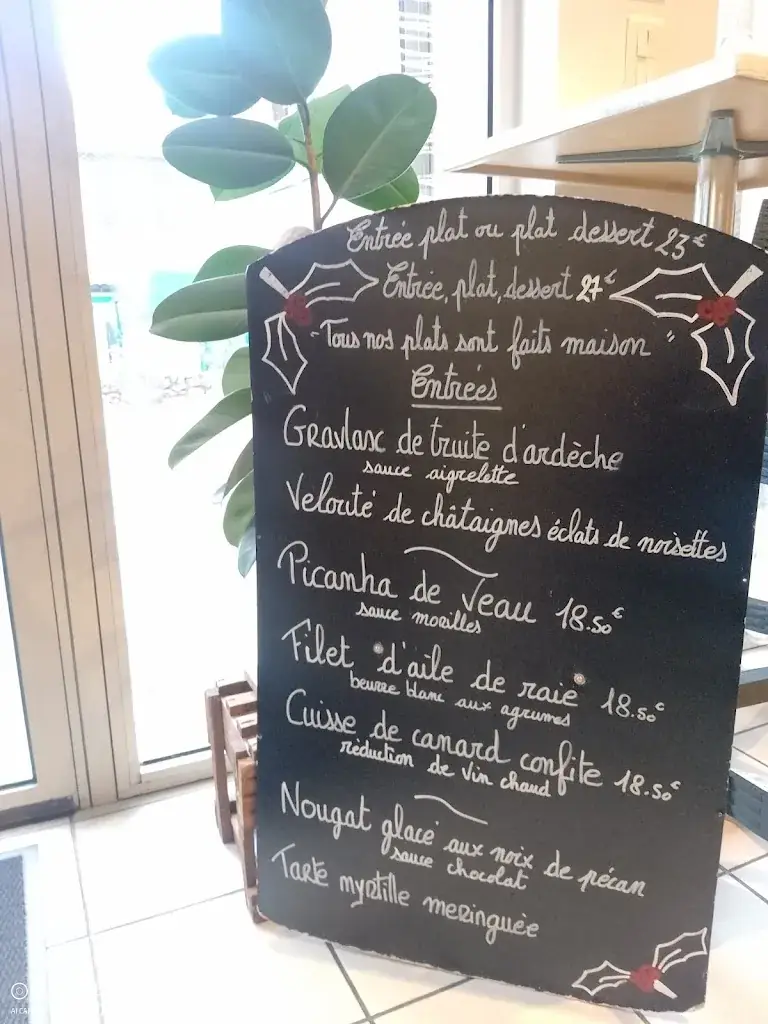 Entrée plat ou plat dessert 23€
Entrée, plat, dessert 27€
"Tous nos plats sont faits maison"
Entrées
Gravlax de truite d'ardèche
sauce aigrelette
Velouté de châtaignes éclats de noisettes
Picanha de veau 18.50€
sauce morilles
Filet d'aile de raie 18.50€
beurre blanc aux agrumes
Cuisse de canard confite 18.50€
réduction de vin chaud
Nougat glacé aux noix de pécan
sauce chocolat
Tarte myrtille meringuée